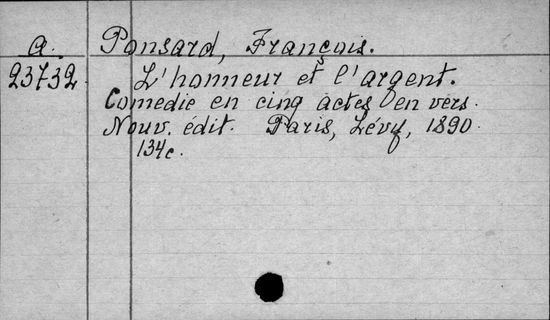 a. Ponsard, François.
23732 L'honneur et l'argent.
Comedie en cinq actes en vers.
Nouv. édit. Paris, Lévy, 1890.
134c.